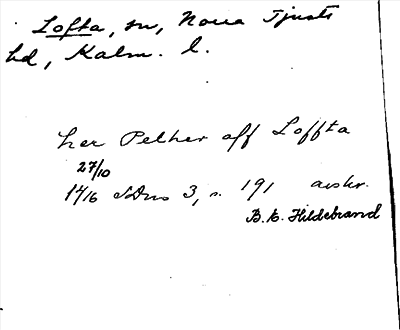 Lofta, sn, Norra Tjusts
hd, Kalm. l.
her Pether aff Loffta
27/10
1416 SDns 3, s. 191 avskr.
B. E. Hildebrand